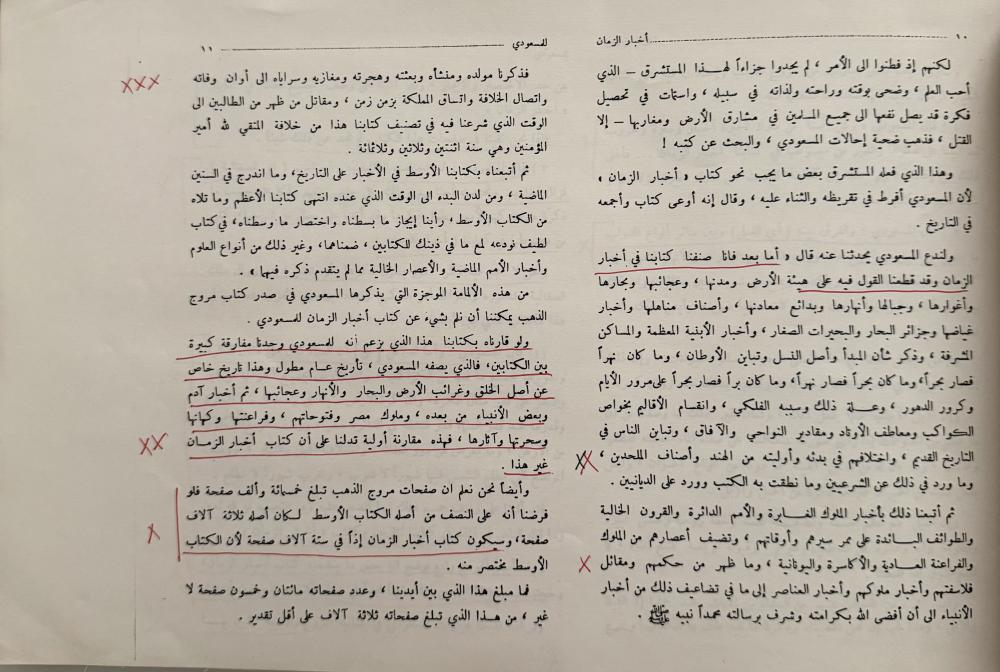 ١٠ أخبار الزمان
لكنهم إذ فطنوا الى الأمر ، لم يجدوا جزاءاً لهــذا المستشرق – الذي
أحب العلم ، وضحى بوقته وراحته ولذاته في سبيله ، واستمات في تحصيل
فكرة قد يصل نفعها الى جميع المسلمين في مشارق الأرض ومغاربها – إلا
القتل ، فذهب ضحية إحالات المسعودي ، والبحث عن كتبه !
وهذا الذي فعله المستشرق بعض ما يجب نحو كتاب « أخبار الزمان »
لأن المسعودي أفرط في تقريظه والثناء عليه ، وقال إنه أوعى كتاب وأجمعه
في التاريخ .
ولندع المسعودي يحدثنا عنه قال « أما بعد فانا صنفنا كتابنا في أخبار
الزمان وقد قطعنا القول فيه على هيئة الأرض ومدنها ، وعجائبها وبحارها
وأغوارها ، وجبالها وأنهارها وبدائع معادنها ، وأصناف مناهلها وأخبار
غياضها وجزائر البحار والبحيرات الصغار ، وأخبار الأبنية المعظمة والمساكن
المشرفة ، وذكر شأن المبدأ وأصل النسل وتباين الأوطان ، وما كان نهراً
فصار بحراً، وما كان بحراً فصار نهراً، وما كان براً فصار بحراً على مرور الأيام
وكرور الدهور ، وعــلة ذلك وسببه الفلكي ، وانقسام الأقاليم بخواص
الكواكب ومعاطف الأوتاد ومقادير النواحي والآفاق ، وتباين الناس في
التاريخ القديم ، واختلافهم في بدئه وأوليته من الهند وأصناف الملحدين ،
وما ورد في ذلك عن الشرعيين وما نطقت به الكتب وورد على الديانيين .
ثم أتبعنا ذلك بأخبار الملوك الغــابرة والأمم الدائرة والقرون الخالية
والطوائف البــائدة على ممر سيرهم وأوقاتهم ، وتضيف أعصارهم من الملوك
والفراعنة العــادية والأكاسرة واليونانية ، وما ظهر من حكمهم ومقائل
فلاسفتهم وأخبار ملوكهم وأخبار العناصر إلى ما في تضاعيف ذلك من أخبار
الأنبياء الى أن أفضى الله بكرامته وشرف برسالته محمداً نبيه ﷺ .
للمسعودي ١١
فذكرنا مولده ومنشأه وبعثته وهجرته ومغازيه وسراياه الى أوان وفاته
واتصال الخلافة واتساق المملكة بزمن زمن ، ومقاتل من ظهر من الطالبين الى
الوقت الذي شرعنا فيه في تصنيف كتابنا هذا من خلافة المتقي لله أمير
المؤمنين وهي سنة اثنتين وثلاثين وثلاثمائة .
ثم أتبعناه بكتابنا الأوسط في الأخبار على التاريخ، وما اندرج في السنين
الماضية ، ومن لدن البدء الى الوقت الذي عنده انتهى كتابنا الأعظم وما تلاه
من الكتاب الأوسط، رأينا إيجاز ما بسطناه واختصار ما وسطناه، في كتاب
لطيف نودعه لمع ما في ذينك للكتابين ، ضمناهما، وغير ذلك من أنواع العلوم
وأخبار الأمم الماضية والأعصار الخالية مما لم يتقدم ذكره فيها » .
من هذه الألمامة الموجزة التي يذكرها المسعودي في صدر كتاب مروج
الذهب يمكننا أن نلم بشيء عن كتاب أخبار الزمان للمسعودي .
ولو قارناه بكتابنا هذا الذي يزعم أنه للمسعودي وجدنا مفارقة كبيرة
بين الكتابين، فالذي يصفه المسعودي ، تأريخ عــام مطول وهذا تاريخ خاص
عن أصل الخلق وغرائب الأرض والبحار والأنهار وعجائبها ، ثم أخبار آدم
وبعض الأنبياء من بعده ، وملوك مصر وفتوحاتهم ، وفراعنتها وكهانها
وسحرتها وآثارها ، فهذه مقارنة أولية تدلنا على أن كتاب أخبار الزمــان
غير هذا .
وأيضاً نحن نعلم ان صفحات مروج الذهب تبلغ خمسمائة وألف صفحة فلو
فرضنا أنه على النصف من أصله الكتاب الأوسط لــكان أصله ثلاثة آلاف
صفحة، وسيكون كتاب أخبار الزمان إذاً في ستة آلاف صفحة لأن الكتاب
الأوسط مختصر منه .
فما مبلغ هذا الذي بين أيدينا ، وعدد صفحاته مائتان وخمسون صفحة لا
غير ، من هــذا الذي تبلغ صفحاته ثلاثة آلاف على أقل تقدير .